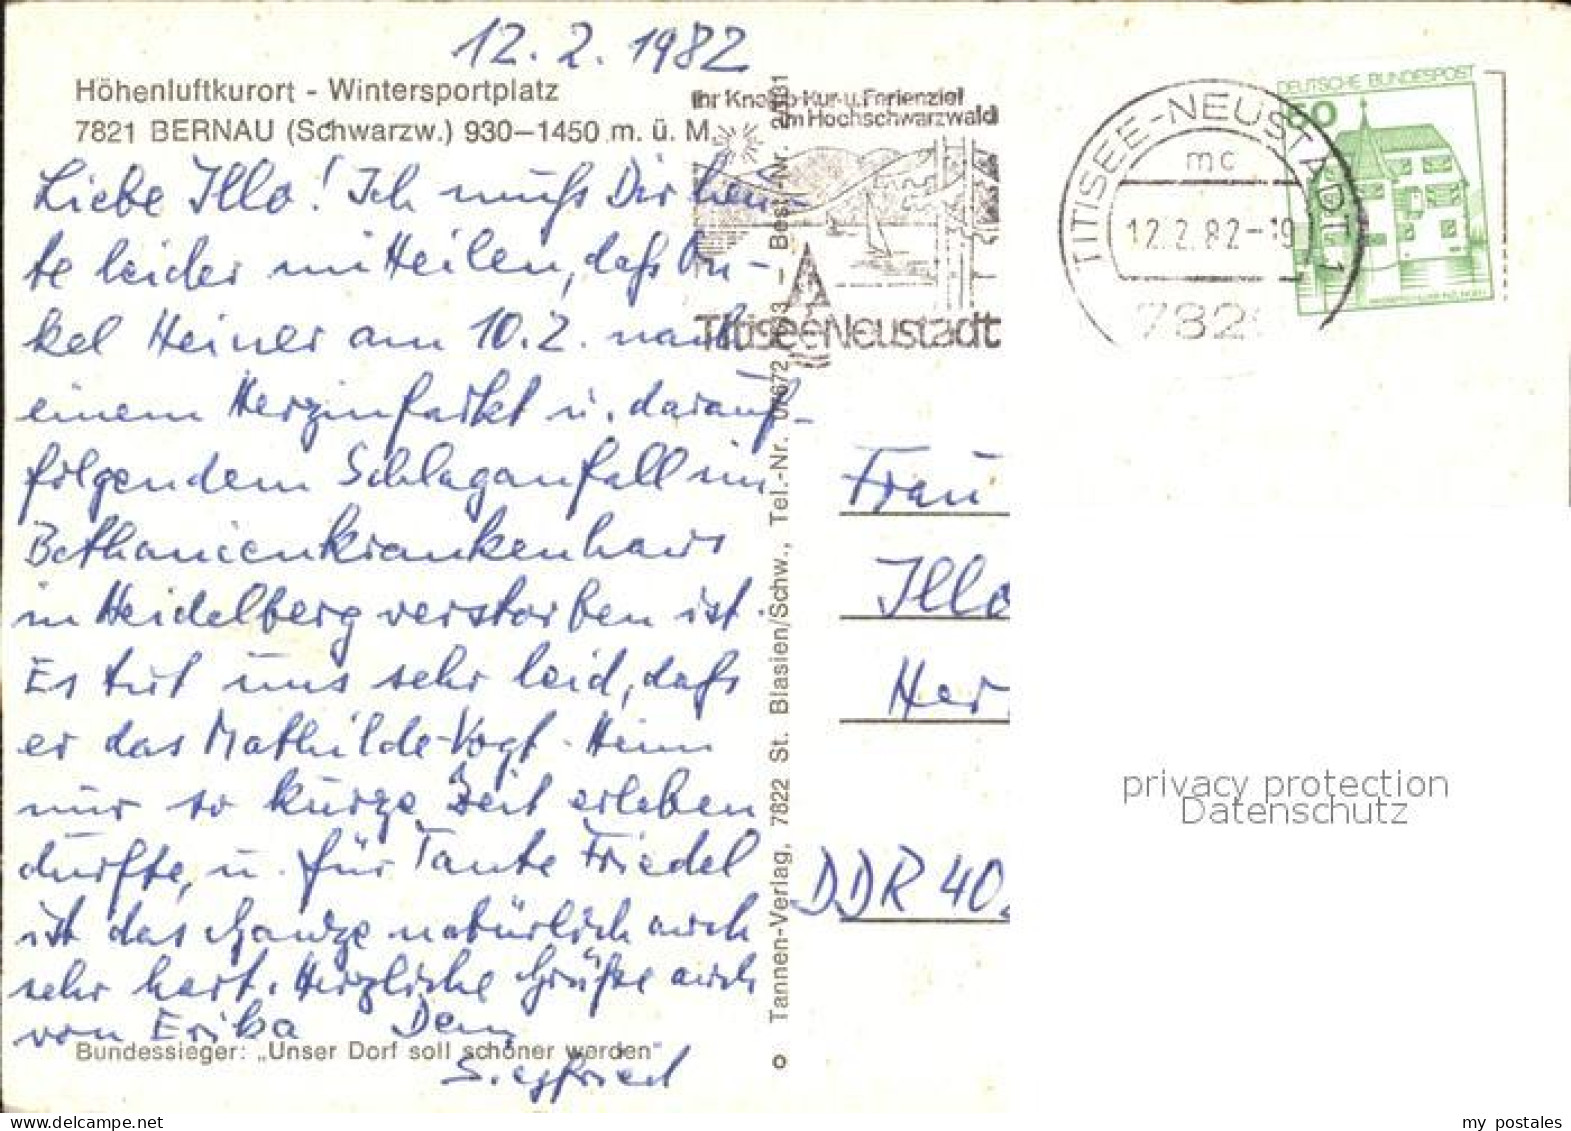 12.2.1982
Höhenluftkurort - Wintersportplatz
7821 BERNAU (Schwarzw.) 930–1450 m. ü. M.
Liebe Illo! Ich muß Dir heu-
te leider mitteilen, daß On-
kel Heiner am 10.2. nach
einem Herzinfarkt u. darauf-
folgendem Schlaganfall im
Bethanienkrankenhaus
in Heidelberg verstorben ist.
Es tut uns sehr leid, daß
er das Mathilde-Vogt-Heim
nur so kurze Zeit erleben
durfte, u. für Tante Friedel
ist das Ganze natürlich auch
sehr hart. Herzliche Grüße auch
von Erika Dein
Siegfried
Bundessieger: „Unser Dorf soll schöner werden"
Tannen-Verlag, 7822 St. Blasien/Schw., Tel.-Nr. 07672 - Best.-Nr.
Ihr Kneipp-Kur-u.Ferienziel
im Hochschwarzwald
TitiseeNeustadt
TITISEE-NEUSTADT 1
mc
12.2.82-19
782
DEUTSCHE BUNDESPOST
50
Frau
Illo
Her
DDR 40
privacy protection
Datenschutz
www.delcampe.net
my_postales